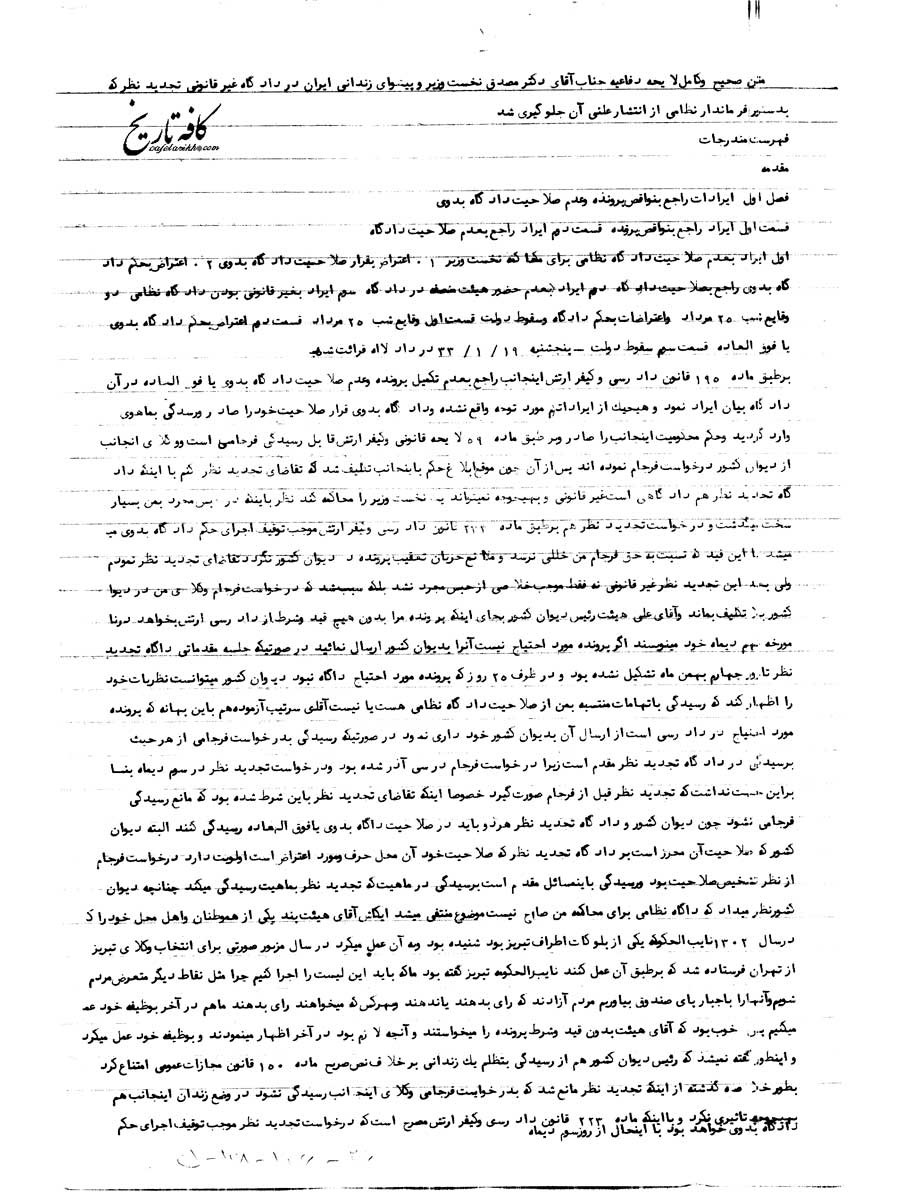 متن صحیح وکامل لایحه دفاعیه جناب آقای دکتر مصدق نخست وزیر و پیشوای زندانی ایران در داد گاه غیر قانونی تجدید نظر که
بدستور فرماندار نظامی از انتشار علنی آن جلوگیری شد
کافه تاریخ
cafetarikh.com
فهرست مندرجات
مقدمه
فصل اول ایرادات راجع بنواقص پرونده وعدم صلاحیت داد گاه بدوی
قسمت اول ایراد راجع بنواقص پرونده قسمت دوم ایراد راجع بعدم صلاحیت دادگاه
اول ایراد بعدم صلاحیت داد گاه نظامی برای محاکمه نخست وزیر ۱ . اعتراض بقرار صلاحیت داد گاه بدوی ۲ . اعتراض بحکم داد
گاه بدوی راجع بصلاحیت داد گاه دوم ایراد بعدم حضور هیئت منصفه در داد گاه سوم ایراد بغیر قانونی بودن داد گاه نظامی دو
وقایع شب ۲۵ مرداد واعتراضات بحکم دادگاه وسقوط دولت قسمت اول وقایع شب ۲۵ مرداد قسمت دوم اعتراض بحکم داد گاه بدوی
یا فوق العاده قسمت سوم سقوط دولت – پنجشنبه ۱۹ / ۱ / ۳۳ در داد گاه قرائت شده
برطبق ماده ۱۹۵ قانون داد رسی وکیفر ارتش اینجانب راجع بعدم تکمیل پرونده وعدم صلاحیت داد گاه بدوی یا فوق العاده در آن
داد گاه بیان ایراد نمود و هیچیک از ایراداتم مورد توجه واقع نشده وداد گاه بدوی قرار صلاحیت خود را صادر ورسیدگی بماهوی
وارد گردید وحکم محکومیت اینجانب را صادر وبر طبق ماده ۵۹ لایحه قانونی وکیفر ارتش قابل رسیدگی فرجامی است ووکلای اینجانب
از دیوان کشور درخواست فرجام نموده اند پس از آن چون موقع ابلاغ حکم باینجانب تکلیف شد که تقاضای تجدید نظر کنم با اینکه داد
گاه تجدید نظر هم داد گاهی است غیر قانونی و بهیچوجه نمیتواند یک نخست وزیر را محاکمه کند نظر باینکه در حبس مجرد بمن بسیار
سخت میگذشت و درخواست تجدید نظر هم برطبق ماده ۲۲۳ قانون داد رسی وکیفر ارتش موجب توقیف اجرای حکم داد گاه بدوی می
میشد با این قید که نسبت به حق فرجام من خللی نرسد و مانع جریان تعقیب پرونده در دیوان کشور نگردد تقاضای تجدید نظر نمودم
ولی بعد این تجدید نظر غیر قانونی نه فقط موجب خلاصی از حبس مجرد نشد بلکه سبب شد که درخواست فرجام وکلای من در دیوا
کشور بلا تکلیف بماند وآقای علی هیئت رئیس دیوان کشور بجای اینکه پرونده مرا بدون هیچ قید وشرط از داد رسی ارتش بخواهد درنا
مورخه نهم دیماه خود مینویسند اگر پرونده مورد احتیاج نیست آنرا بدیوان کشور ارسال نمائید در صورتیکه جلسه مقدماتی دادگاه تجدید
نظر تا روز چهارم بهمن ماه تشکیل نشده بود و در ظرف ۲۵ روز که پرونده مورد احتیاج دادگاه نبود دیوان کشور میتوانست نظریات خود
را اظهار کند که رسیدگی باتهامات منتسبه بمن از صلاحیت داد گاه نظامی هست یا نیست آقای سرتیپ آزموده هم باین بهانه که پرونده
مورد احتیاج در داد رسی است از ارسال آن بدیوان کشور خود داری نمود در صورتیکه رسیدگی بدرخواست فرجامی از هر حیث
برسیدگی در داد گاه تجدید نظر مقدم است زیرا درخواست فرجام در سی آذر شده بود ودرخواست تجدید نظر در سوم دیماه بنا
براین جهت نداشت که تجدید نظر قبل از فرجام صورت گیرد خصوصا اینکه تقاضای تجدید نظر باین شرط شده بود که مانع رسیدگی
فرجامی نشود چون دیوان کشور و داد گاه تجدید نظر هر دو باید در صلاحیت دادگاه بدوی یافوق العاده رسیدگی کنند البته دیوان
کشور که صلاحیت آن محرز است بر داد گاه تجدید نظر که صلاحیت خود آن محل حرف ومورد اعتراض است اولویت دارد درخواست فرجام
از نظر تشخیص صلاحیت بود ورسیدگی باینمسائل مقدم است برسیدگی در ماهیت که تجدید نظر بماهیت رسیدگی میکند چنانچه دیوان
کشور نظر میداد که دادگاه نظامی برای محاکمه من صالح نیست موضوع منتفی میشد ایکاش آقای هیئت پند یکی از هموطنان واهل محل خود را ک
در سال ۱۳۰۲ نایب الحکومه یکی از بلوکات اطراف تبریز بود شنیده بود وبه آن عمل میکرد در سال مزبور صورتی برای انتخاب وکلای تبریز
از تهران فرستاده شد که برطبق آن عمل کنند نایب الحکومه تبریز گفته بود ماکه باید این لیست را اجرا کنیم چرا مثل نقاط دیگر متعرض مردم
شویم وآنها را باجبار پای صندوق بیاوریم مردم آزادند که رای بدهند یاندهند وبهرکس که میخواهند رای بدهند ماهم در آخر بوظیفه خود عمـ
میکنیم پس خوب بود که آقای هیئت بدون قید وشرط پرونده را میخواستند و آنچه لازم بود در آخر اظهار مینمودند و بوظیفه خود عمل میکرد
و اینطور گفته نمیشد که رئیس دیوان کشور هم از رسیدگی بتظلم یك زندانی برخلاف نص صریح ماده ۱۵۰ قانون مجازات عمومی امتناع کرد
بطور خلاصه گذشته از اینکه تجدید نظر مانع شد که بدرخواست فرجامی وکلای اینجانب رسیدگی نشود در وضع زندان اینجانب هم
بهیچوجه تاثیری نکرد و بااینکه ماده ۲۲۳ قانون داد رسی وکیفر ارتش مصرح است که درخواست تجدید نظر موجب توقیف اجرای حکم
دادگاه بدوی خواهد بود با اینحال از روز سوم دیماه